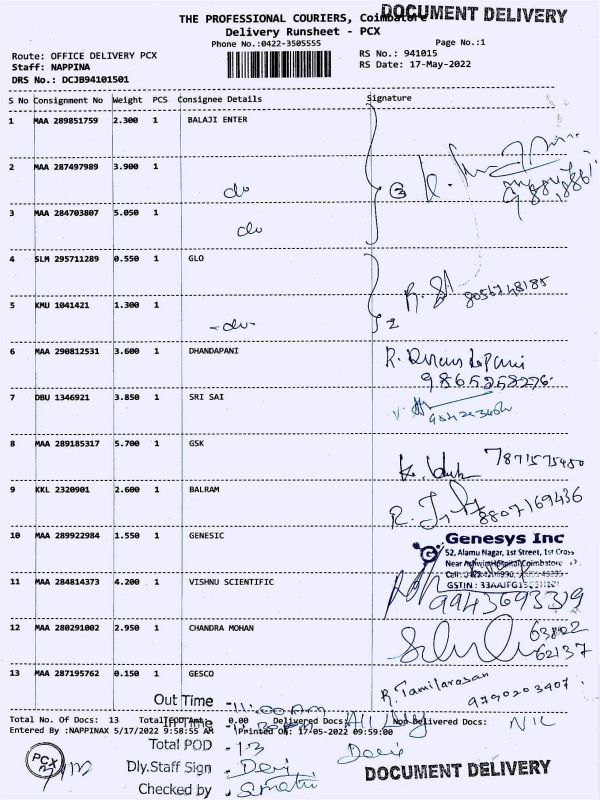 THE PROFESSIONAL COURIERS, Coimbatore
DOCUMENT DELIVERY
Delivery Runsheet - PCX
Phone No.:0422-3505555
Page No.:1
Route: OFFICE DELIVERY PCX
RS No.: 941015
Staff: NAPPINA
RS Date: 17-May-2022
DRS No.: DCJB94101501
S No Consignment No Weight PCS Consignee Details Signature
1 MAA 289851759 2.300 1 BALAJI ENTER
2 MAA 287497989 3.900 1
do
3
3 MAA 284703807 5.050 1
do
4 SLM 295711289 0.550 1 GLO
8056748185
5 KMU 1041421 1.300 1
-do-
2
6 MAA 290812531 3.600 1 DHANDAPANI
9865258276
7 DBU 1346921 3.850 1 SRI SAI
8 MAA 289185317 5.700 1 GSK
7871575480
9 KKL 2320901 2.600 1 BALRAM
8807169436
10 MAA 289922984 1.550 1 GENESIC
Genesys Inc
52, Alamu Nagar, 1st Street, 1st Cross
Near Ashwin Hospital Coimbatore
11 MAA 284814373 4.200 1 VISHNU SCIENTIFIC
GSTIN : 33AAJFG
9943693319
12 MAA 280291002 2.950 1 CHANDRA MOHAN
63802
62137
13 MAA 287195762 0.150 1 GESCO
R. Tamilarasan
9790203407
Out Time - 11:00 AM
Total No. Of Docs: 13 Total 0.00 Delivered Docs: Non-Delivered Docs: NIL
In Time
Entered By :NAPPINAX 5/17/2022 9:58:55 AM Printed On: 17-05-2022 09:59:00
Total POD - 13
PCX
Dly.Staff Sign - Devi
DOCUMENT DELIVERY
Checked by